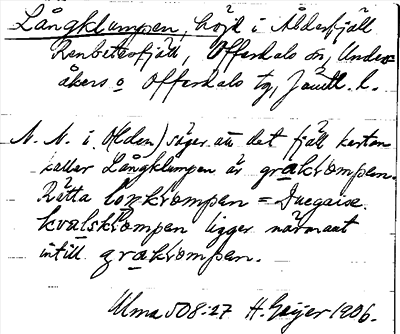 Långklumpen, höjd i Åldersfjäll
Renbetesfjäll, Offerdals sn, Under-
åkers o Offerdals tg, Jämtl. l.
N. N. i Olden) säger att det fjäll kartan
kallar Långklumpen är gräklompen.
Rätta loŋklompen = Duegaise.
kvalsklompen ligger närmast
intill gräklompen.
Ulma 508:27 H. Geijer 1906.